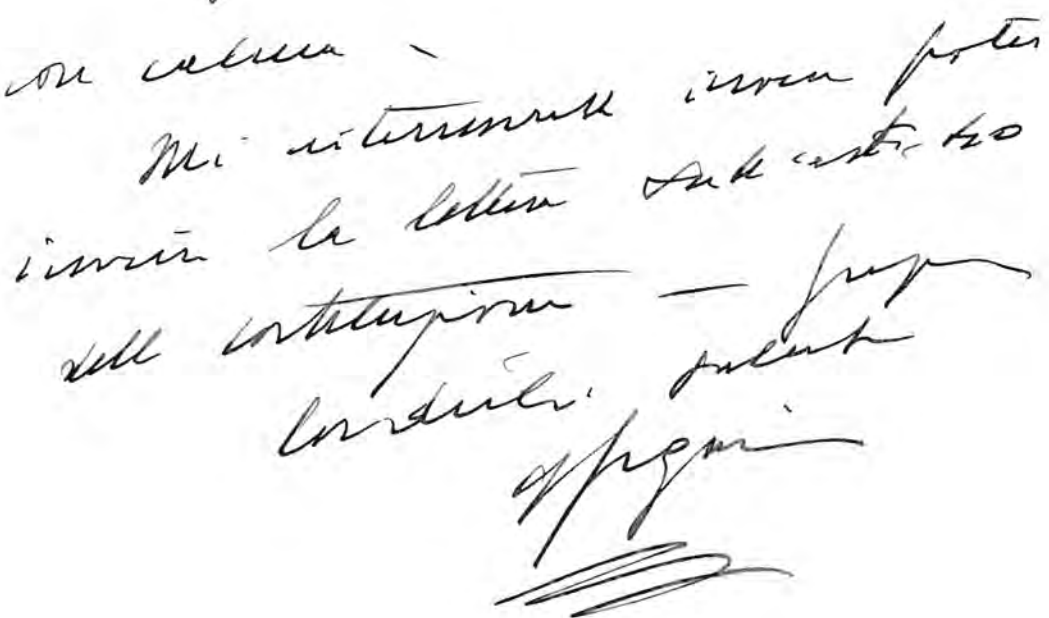 con calma
Mi interesserebbe invece poter
inserire la lettera sul
della costituzione — grazie
Cordiali saluti